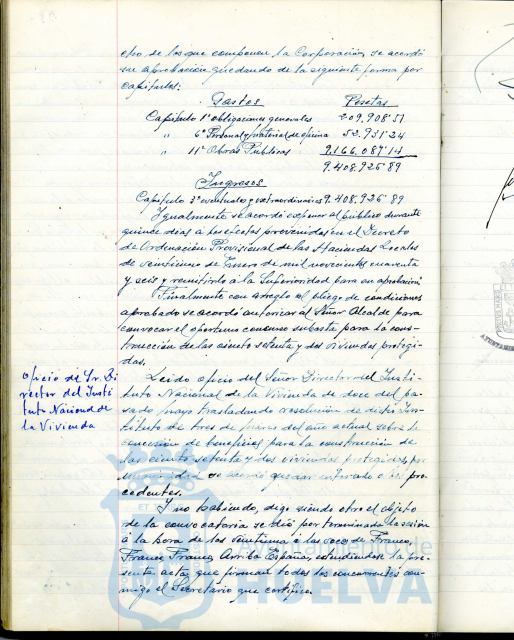 cho de los que componen la Corporación, se acordó
su aprobación quedando de la siguiente forma por
capítulos:
Gastos Pesetas
Capítulo 1º obligaciones generales 209.908'51
" 6º Personal y material de oficina 32.931'24
" 11º Obras Públicas 9.166.087'14
9.408.926'89
Ingresos
Capítulo 3º eventuales y extraordinarios 9.408.926'89
Igualmente se acordó exponer al público durante
quince días a los efectos prevenidos en el Decreto
de Ordenación Provisional de las Haciendas Locales
de veinticinco de Enero de mil novecientos cuarenta
y seis y remitirlo a la Superioridad para su aprobación
Finalmente con arreglo al pliego de condiciones
aprobado se acordó autorizar al Señor Alcalde para
convocar el oportuno concurso subasta para la cons-
trucción de las ciento setenta y dos viviendas protegi-
das.
Oficio del Sr. Di
rector del Insti
tuto Nacional de
la Vivienda
Leído oficio del Señor Director del Insti-
tuto Nacional de la Vivienda de doce del pa-
sado mayo trasladando resolución de dicho Ins-
tituto de tres de del año actual sobre la
concesión de beneficios para la construcción de
las ciento setenta y dos viviendas protegidas, por
unanimidad se acordó quedar enterado pro-
cedentes.
Y no habiendo, digo siendo otro el objeto
de la convocatoria se dió por terminada la sesión
a la hora de las veintiuna a las voces de Franco,
Franco, Franco, Arriba España, extendiendose la pre-
sente acta que firman todos los concurrentes con-
migo el Secretario que certifico.
HUELVA